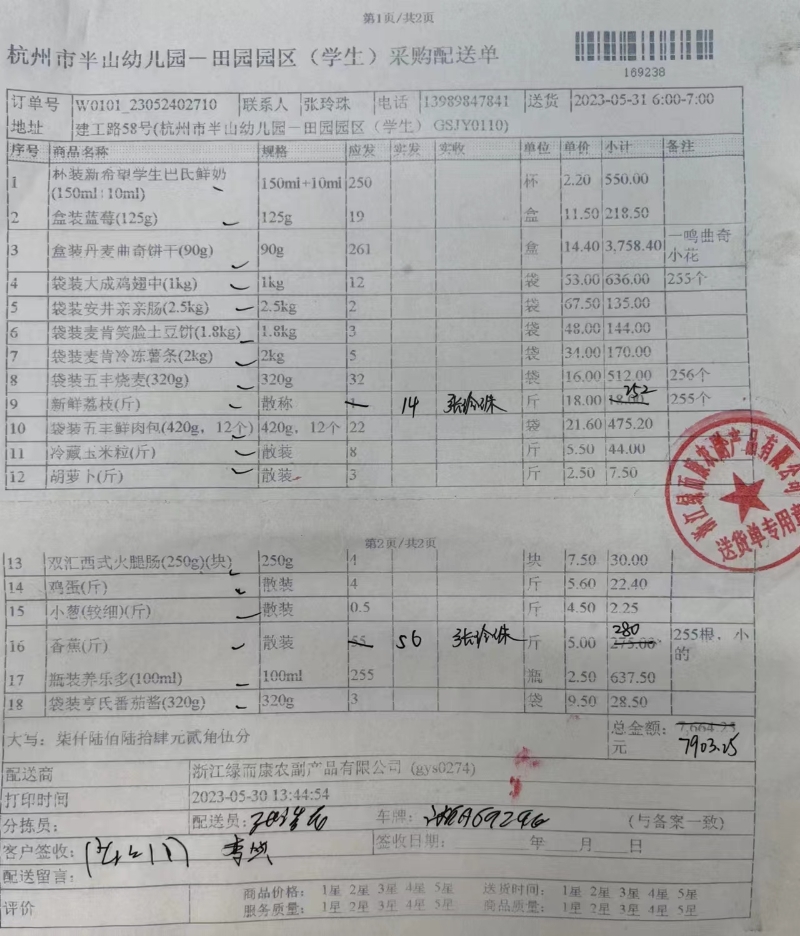 第1页/共2页
杭州市半山幼儿园－田园园区（学生）采购配送单
169238
订单号 W0101_23052402710 联系人 张玲珠 电话 13989847841 送货 2023-05-31 6:00-7:00
地址 建工路58号(杭州市半山幼儿园－田园园区（学生）GSJY0110)
序号 商品名称 规格 应发 实发 实收 单位 单价 小计 备注
1 杯装新希望学生巴氏鲜奶(150ml+10ml) 150ml+10ml 250 杯 2.20 550.00
2 盒装蓝莓(125g) 125g 19 盒 11.50 218.50
3 盒装丹麦曲奇饼干(90g) 90g 261 盒 14.40 3,758.40 一鸣曲奇小花
4 袋装大成鸡翅中(1kg) 1kg 12 袋 53.00 636.00 255个
5 袋装安井亲亲肠(2.5kg) 2.5kg 2 袋 67.50 135.00
6 袋装麦肯笑脸土豆饼(1.8kg) 1.8kg 3 袋 48.00 144.00
7 袋装麦肯冷冻薯条(2kg) 2kg 5 袋 34.00 170.00
8 袋装五丰烧麦(320g) 320g 32 袋 16.00 512.00 256个
9 新鲜荔枝(斤) 散称 14 张玲珠 斤 18.00 252 255个
10 袋装五丰鲜肉包(420g，12个) 420g，12个 22 袋 21.60 475.20
11 冷藏玉米粒(斤) 散装 8 斤 5.50 44.00
12 胡萝卜(斤) 散装 3 斤 2.50 7.50
送货单专用章
第2页/共2页
13 双汇西式火腿肠(250g)(块) 250g 4 块 7.50 30.00
14 鸡蛋(斤) 散装 4 斤 5.60 22.40
15 小葱(较细)(斤) 散装 0.5 斤 4.50 2.25
16 香蕉(斤) 散装 55 56 张玲珠 斤 5.00 275.00 280 255根，小的
17 瓶装养乐多(100ml) 100ml 255 瓶 2.50 637.50
18 袋装亨氏番茄酱(320g) 320g 3 袋 9.50 28.50
大写：柒仟陆佰陆拾肆元贰角伍分 总金额：7,664.25 元 7903.25
配送商 浙江绿而康农副产品有限公司 (gys0274)
打印时间 2023-05-30 13:44:54
分拣员： 配送员： 车牌： （与备案一致）
客户签收： 签收日期： 年 月 日
配送留言：
评价 商品价格： 1星 2星 3星 4星 5星 送货时间： 1星 2星 3星 4星 5星
服务质量： 1星 2星 3星 4星 5星 商品质量： 1星 2星 3星 4星 5星